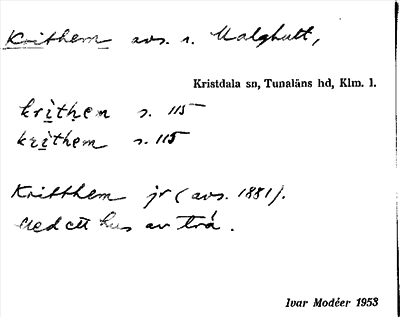 Krithem avs. n. Malghult,
Kristdala sn, Tunaläns hd, Klm. l.
krithem s. 115
krithem s. 115
Kritthem jr (avs. 1881).
Med ett hus av trä.
Ivar Modéer 1953